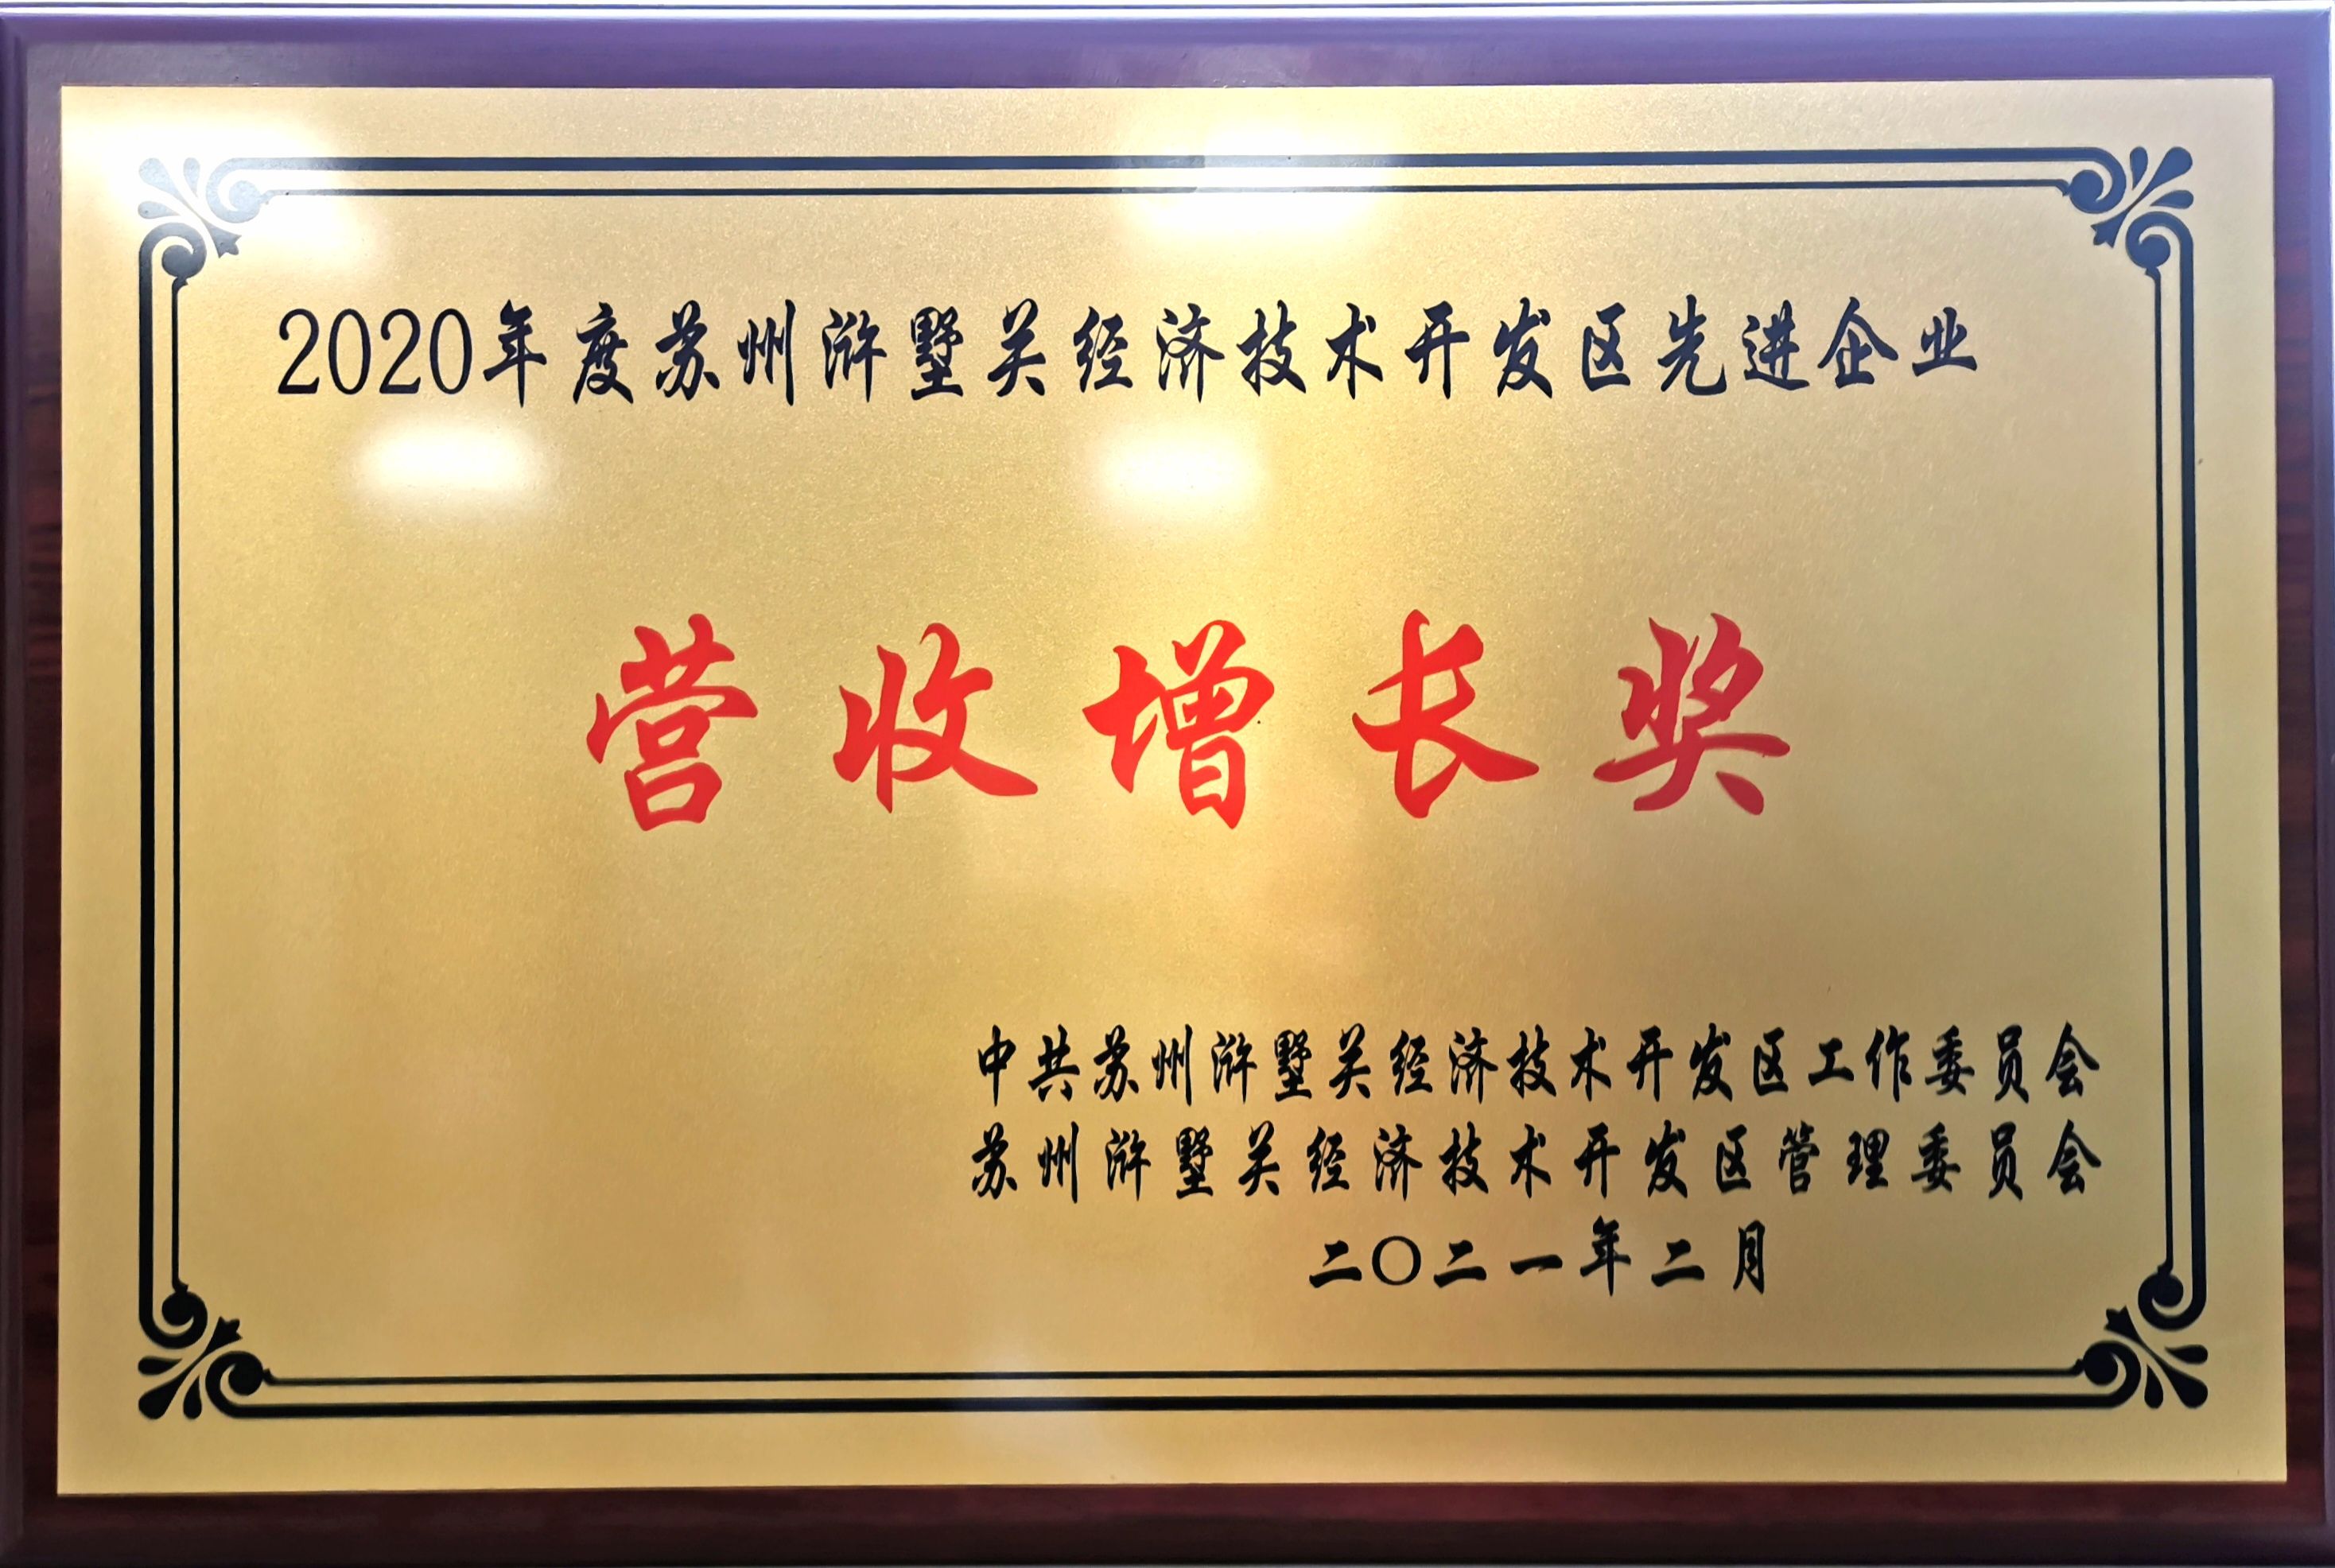 2020年度苏州浒墅关经济技术开发区先进企业
营收增长奖
中共苏州浒墅关经济技术开发区工作委员会
苏州浒墅关经济技术开发区管理委员会
二〇二一年二月